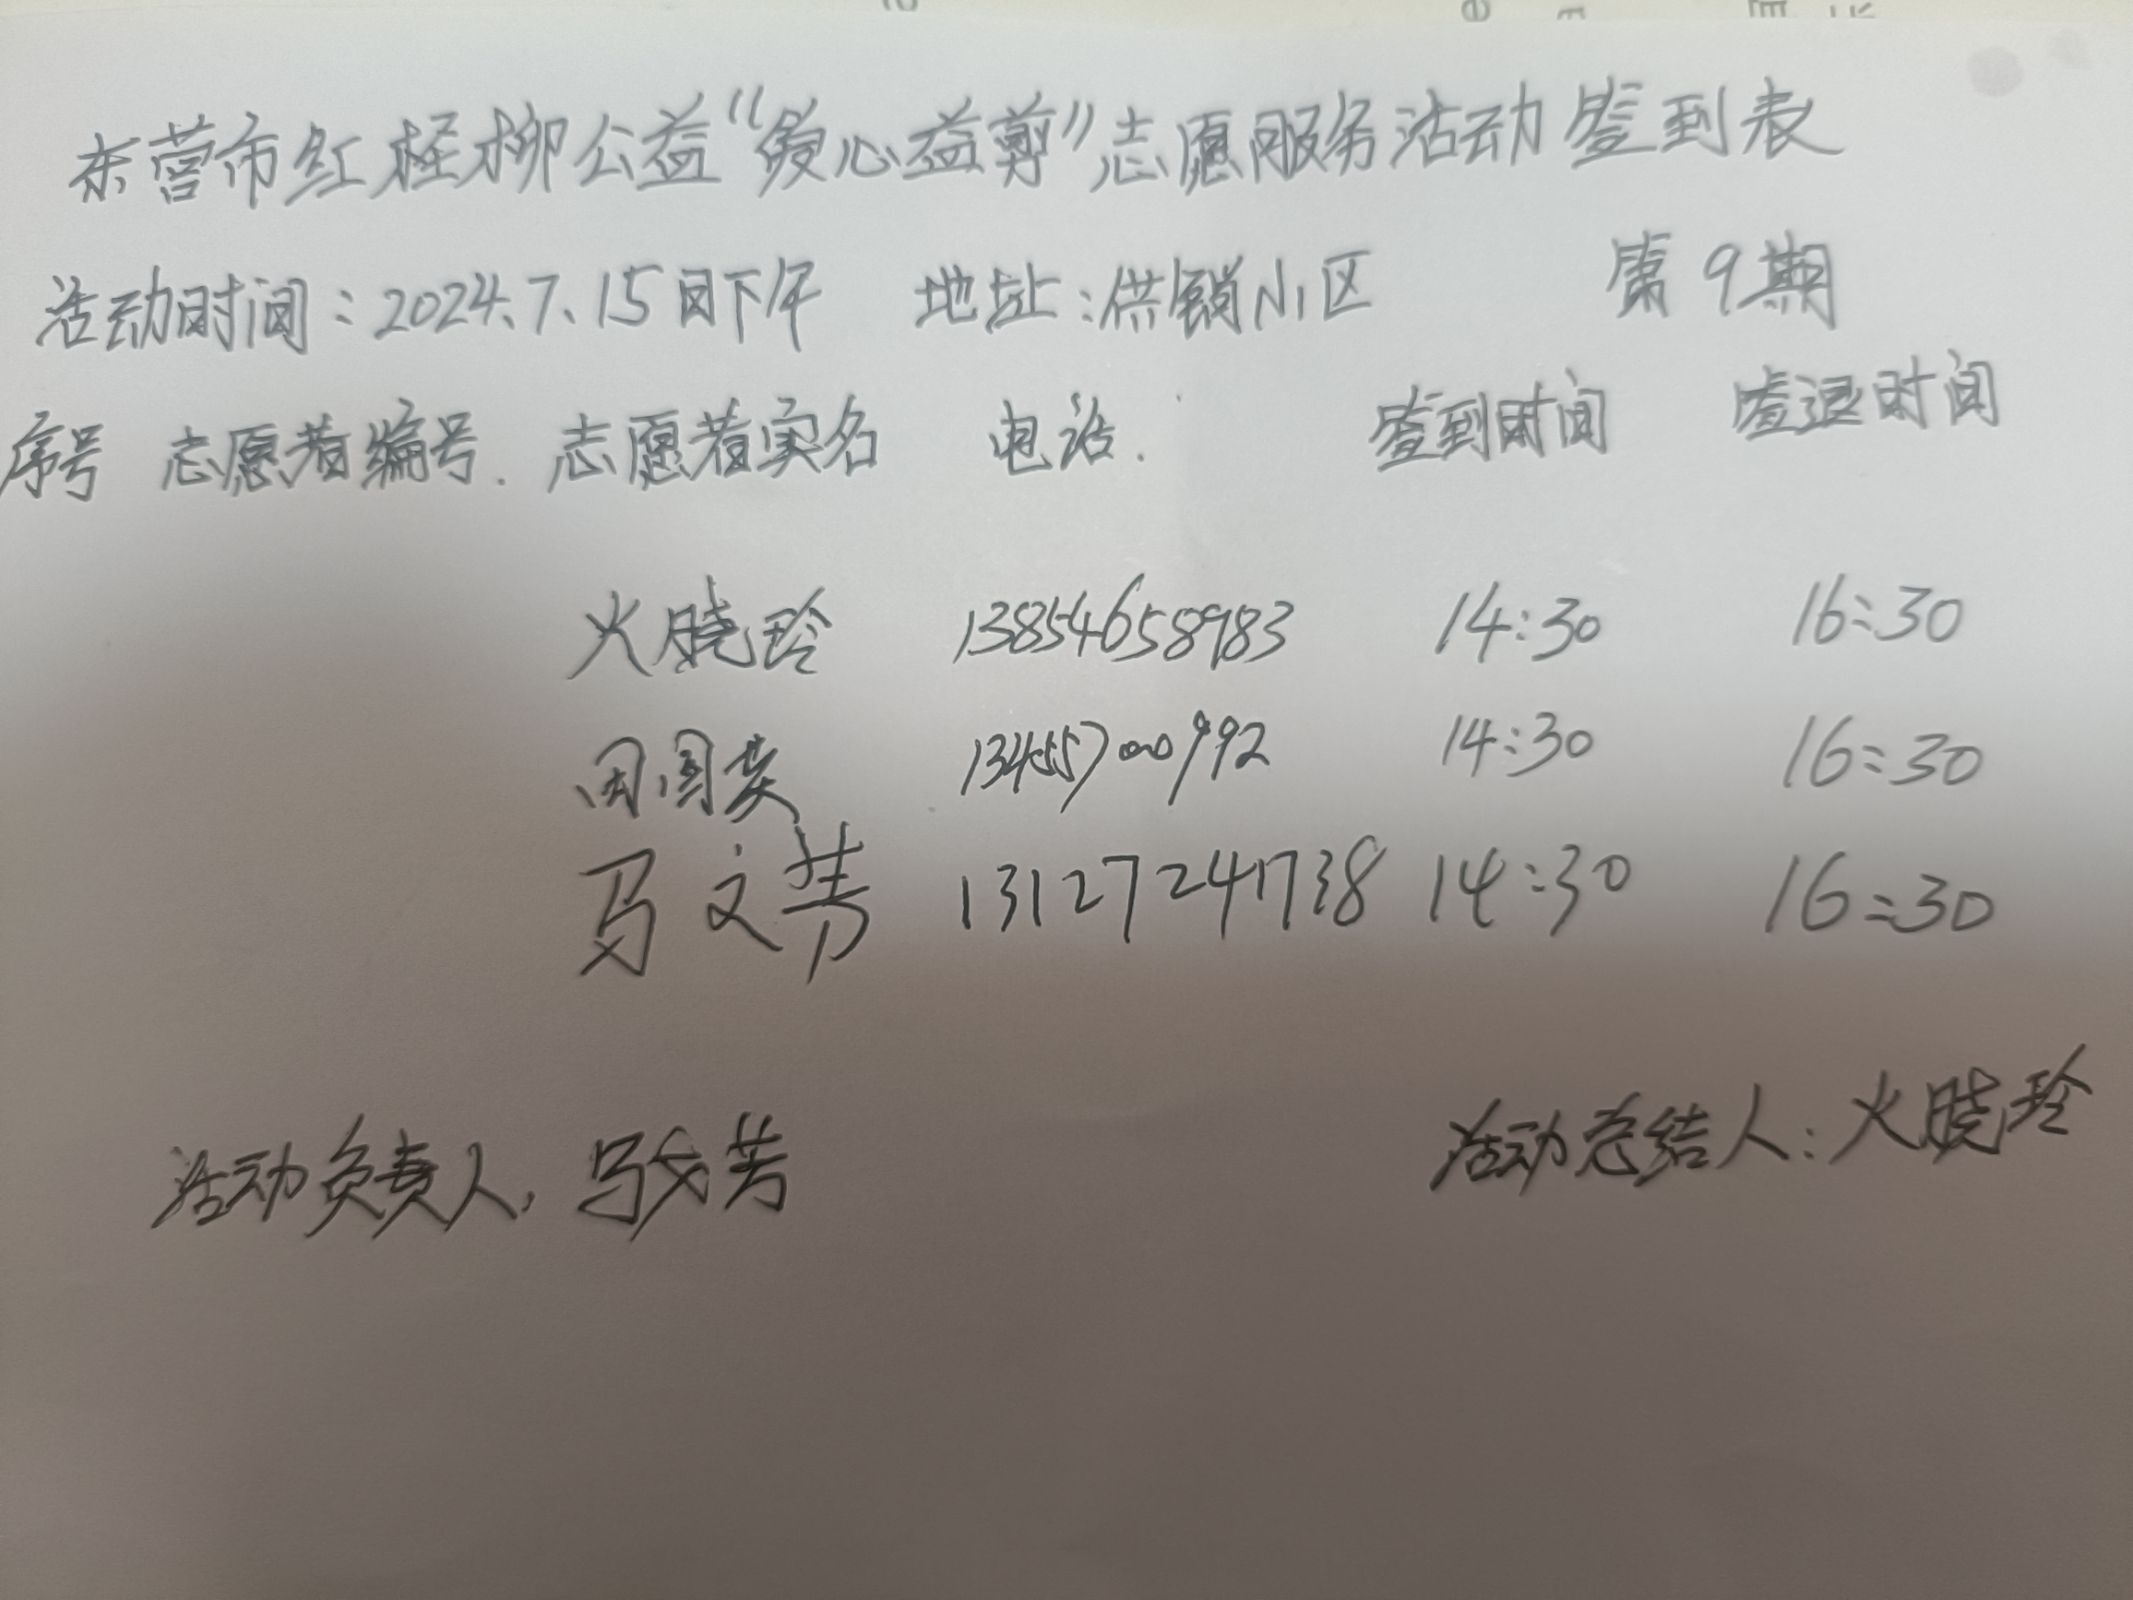 东营市红柽柳公益“爱心益剪”志愿服务活动签到表
活动时间：2024.7.15日下午 地址：供销小区 第9期
序号 志愿者编号. 志愿者实名 电话. 签到时间 签退时间
火晓玲 13854658983 14:30 16:30
田国英 13455700992 14:30 16:30
马文芳 13127241738 14:30 16:30
活动负责人, 马文芳 活动总结人：火晓玲